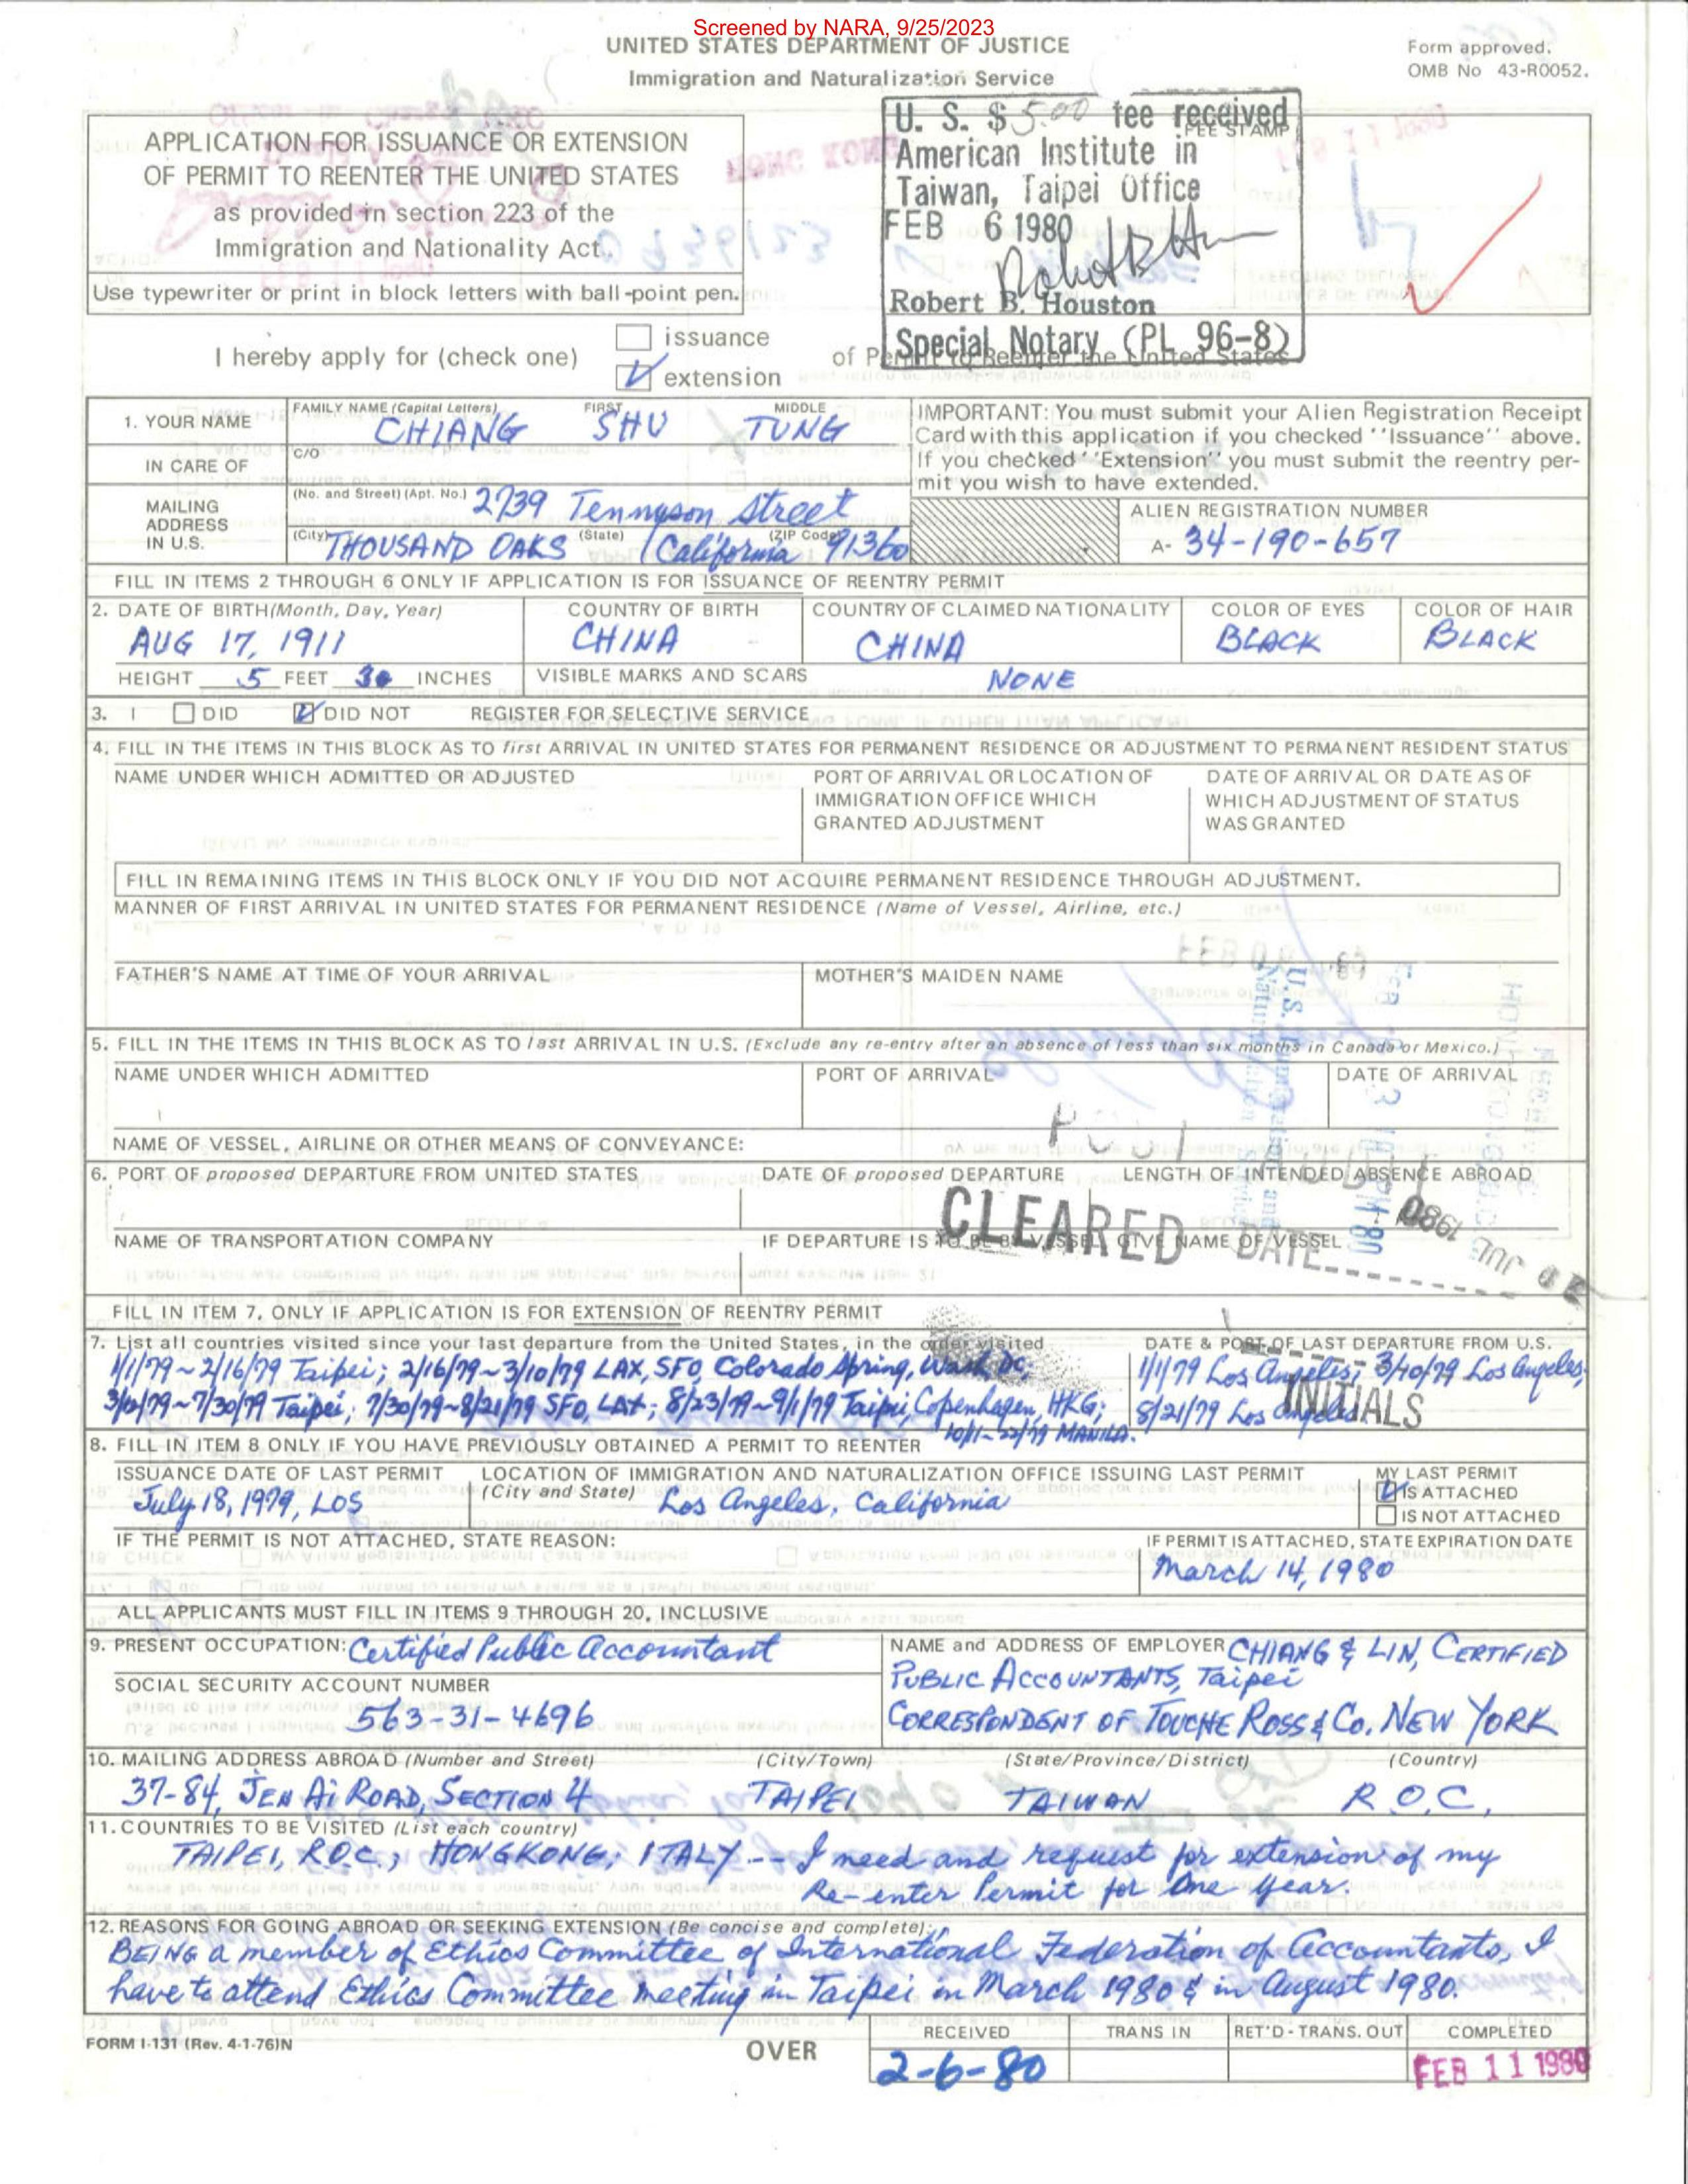 Screened by NARA, 9/25/2023
UNITED STATES DEPARTMENT OF JUSTICE
Immigration and Naturalization Service
Form approved.
OMB No 43-R0052.
APPLICATION FOR ISSUANCE OR EXTENSION
OF PERMIT TO REENTER THE UNITED STATES
as provided in section 223 of the
Immigration and Nationality Act.
Use typewriter or print in block letters with ball-point pen.
FEE STAMP
U. S. $ 5.00 fee received
American Institute in
Taiwan, Taipei Office
FEB 6 1980
Robert B. Houston
Special Notary (PL 96-8)
I hereby apply for (check one)
issuance
extension
of Permit to Reenter the United States
1. YOUR NAME
FAMILY NAME (Capital Letters) FIRST MIDDLE
CHIANG SHU TUNG
IN CARE OF
C/O
MAILING ADDRESS IN U.S.
(No. and Street) (Apt. No.) 2739 Tennyson Street
(City) (State) (ZIP Code)
THOUSAND OAKS California 91360
IMPORTANT: You must submit your Alien Registration Receipt
Card with this application if you checked "Issuance" above.
If you checked "Extension" you must submit the reentry per-
mit you wish to have extended.
ALIEN REGISTRATION NUMBER
A- 34-190-657
FILL IN ITEMS 2 THROUGH 6 ONLY IF APPLICATION IS FOR ISSUANCE OF REENTRY PERMIT
2. DATE OF BIRTH (Month, Day, Year) COUNTRY OF BIRTH COUNTRY OF CLAIMED NATIONALITY COLOR OF EYES COLOR OF HAIR
AUG 17, 1911 CHINA CHINA BLACK BLACK
HEIGHT 5 FEET 3 INCHES VISIBLE MARKS AND SCARS NONE
3. I DID DID NOT REGISTER FOR SELECTIVE SERVICE
4. FILL IN THE ITEMS IN THIS BLOCK AS TO first ARRIVAL IN UNITED STATES FOR PERMANENT RESIDENCE OR ADJUSTMENT TO PERMANENT RESIDENT STATUS
NAME UNDER WHICH ADMITTED OR ADJUSTED
PORT OF ARRIVAL OR LOCATION OF
IMMIGRATION OFFICE WHICH
GRANTED ADJUSTMENT
DATE OF ARRIVAL OR DATE AS OF
WHICH ADJUSTMENT OF STATUS
WAS GRANTED
FILL IN REMAINING ITEMS IN THIS BLOCK ONLY IF YOU DID NOT ACQUIRE PERMANENT RESIDENCE THROUGH ADJUSTMENT.
MANNER OF FIRST ARRIVAL IN UNITED STATES FOR PERMANENT RESIDENCE (Name of Vessel, Airline, etc.)
FATHER'S NAME AT TIME OF YOUR ARRIVAL MOTHER'S MAIDEN NAME
5. FILL IN THE ITEMS IN THIS BLOCK AS TO last ARRIVAL IN U.S. (Exclude any re-entry after an absence of less than six months in Canada or Mexico.)
NAME UNDER WHICH ADMITTED PORT OF ARRIVAL DATE OF ARRIVAL
NAME OF VESSEL, AIRLINE OR OTHER MEANS OF CONVEYANCE:
6. PORT OF proposed DEPARTURE FROM UNITED STATES DATE OF proposed DEPARTURE LENGTH OF INTENDED ABSENCE ABROAD
CLEARED DATE
NAME OF TRANSPORTATION COMPANY IF DEPARTURE IS TO BE BY VESSEL GIVE NAME OF VESSEL
FILL IN ITEM 7, ONLY IF APPLICATION IS FOR EXTENSION OF REENTRY PERMIT
7. List all countries visited since your last departure from the United States, in the order visited
DATE & PORT OF LAST DEPARTURE FROM U.S.
1/1/79~2/16/79 Taipei; 2/16/79~3/10/79 LAX, SFO, Colorado Spring, Wash DC,
3/10/79~7/30/79 Taipei; 7/30/79~8/21/79 SFO, LAX; 8/23/79~9/1/79 Taipei, Copenhagen, HKG;
10/11~22/79 MANILA.
1/1/79 Los Angeles; 3/10/79 Los Angeles;
8/21/79 Los Angeles
INITIALS
8. FILL IN ITEM 8 ONLY IF YOU HAVE PREVIOUSLY OBTAINED A PERMIT TO REENTER
ISSUANCE DATE OF LAST PERMIT
July 18, 1979, LOS
LOCATION OF IMMIGRATION AND NATURALIZATION OFFICE ISSUING LAST PERMIT
(City and State) Los Angeles, California
MY LAST PERMIT
IS ATTACHED
IS NOT ATTACHED
IF THE PERMIT IS NOT ATTACHED, STATE REASON:
IF PERMIT IS ATTACHED, STATE EXPIRATION DATE
March 14, 1980
ALL APPLICANTS MUST FILL IN ITEMS 9 THROUGH 20, INCLUSIVE
9. PRESENT OCCUPATION: Certified Public Accountant
SOCIAL SECURITY ACCOUNT NUMBER
563-31-4696
NAME and ADDRESS OF EMPLOYER CHIANG & LIN, CERTIFIED
PUBLIC ACCOUNTANTS, Taipei
CORRESPONDENT OF TOUCHE ROSS & Co. NEW YORK
10. MAILING ADDRESS ABROAD (Number and Street) (City/Town) (State/Province/District) (Country)
37-84, JEN AI ROAD, SECTION 4 TAIPEI TAIWAN R.O.C.
11. COUNTRIES TO BE VISITED (List each country)
TAIPEI, R.O.C.; HONGKONG; ITALY -- I need and request for extension of my
Re-enter Permit for One Year.
12. REASONS FOR GOING ABROAD OR SEEKING EXTENSION (Be concise and complete):
BEING a member of Ethics Committee of International Federation of Accountants, I
have to attend Ethics Committee meeting in Taipei in March 1980 & in August 1980.
FORM I-131 (Rev. 4-1-76)N
OVER
RECEIVED TRANS IN RET'D-TRANS. OUT COMPLETED
2-6-80 FEB 11 1980